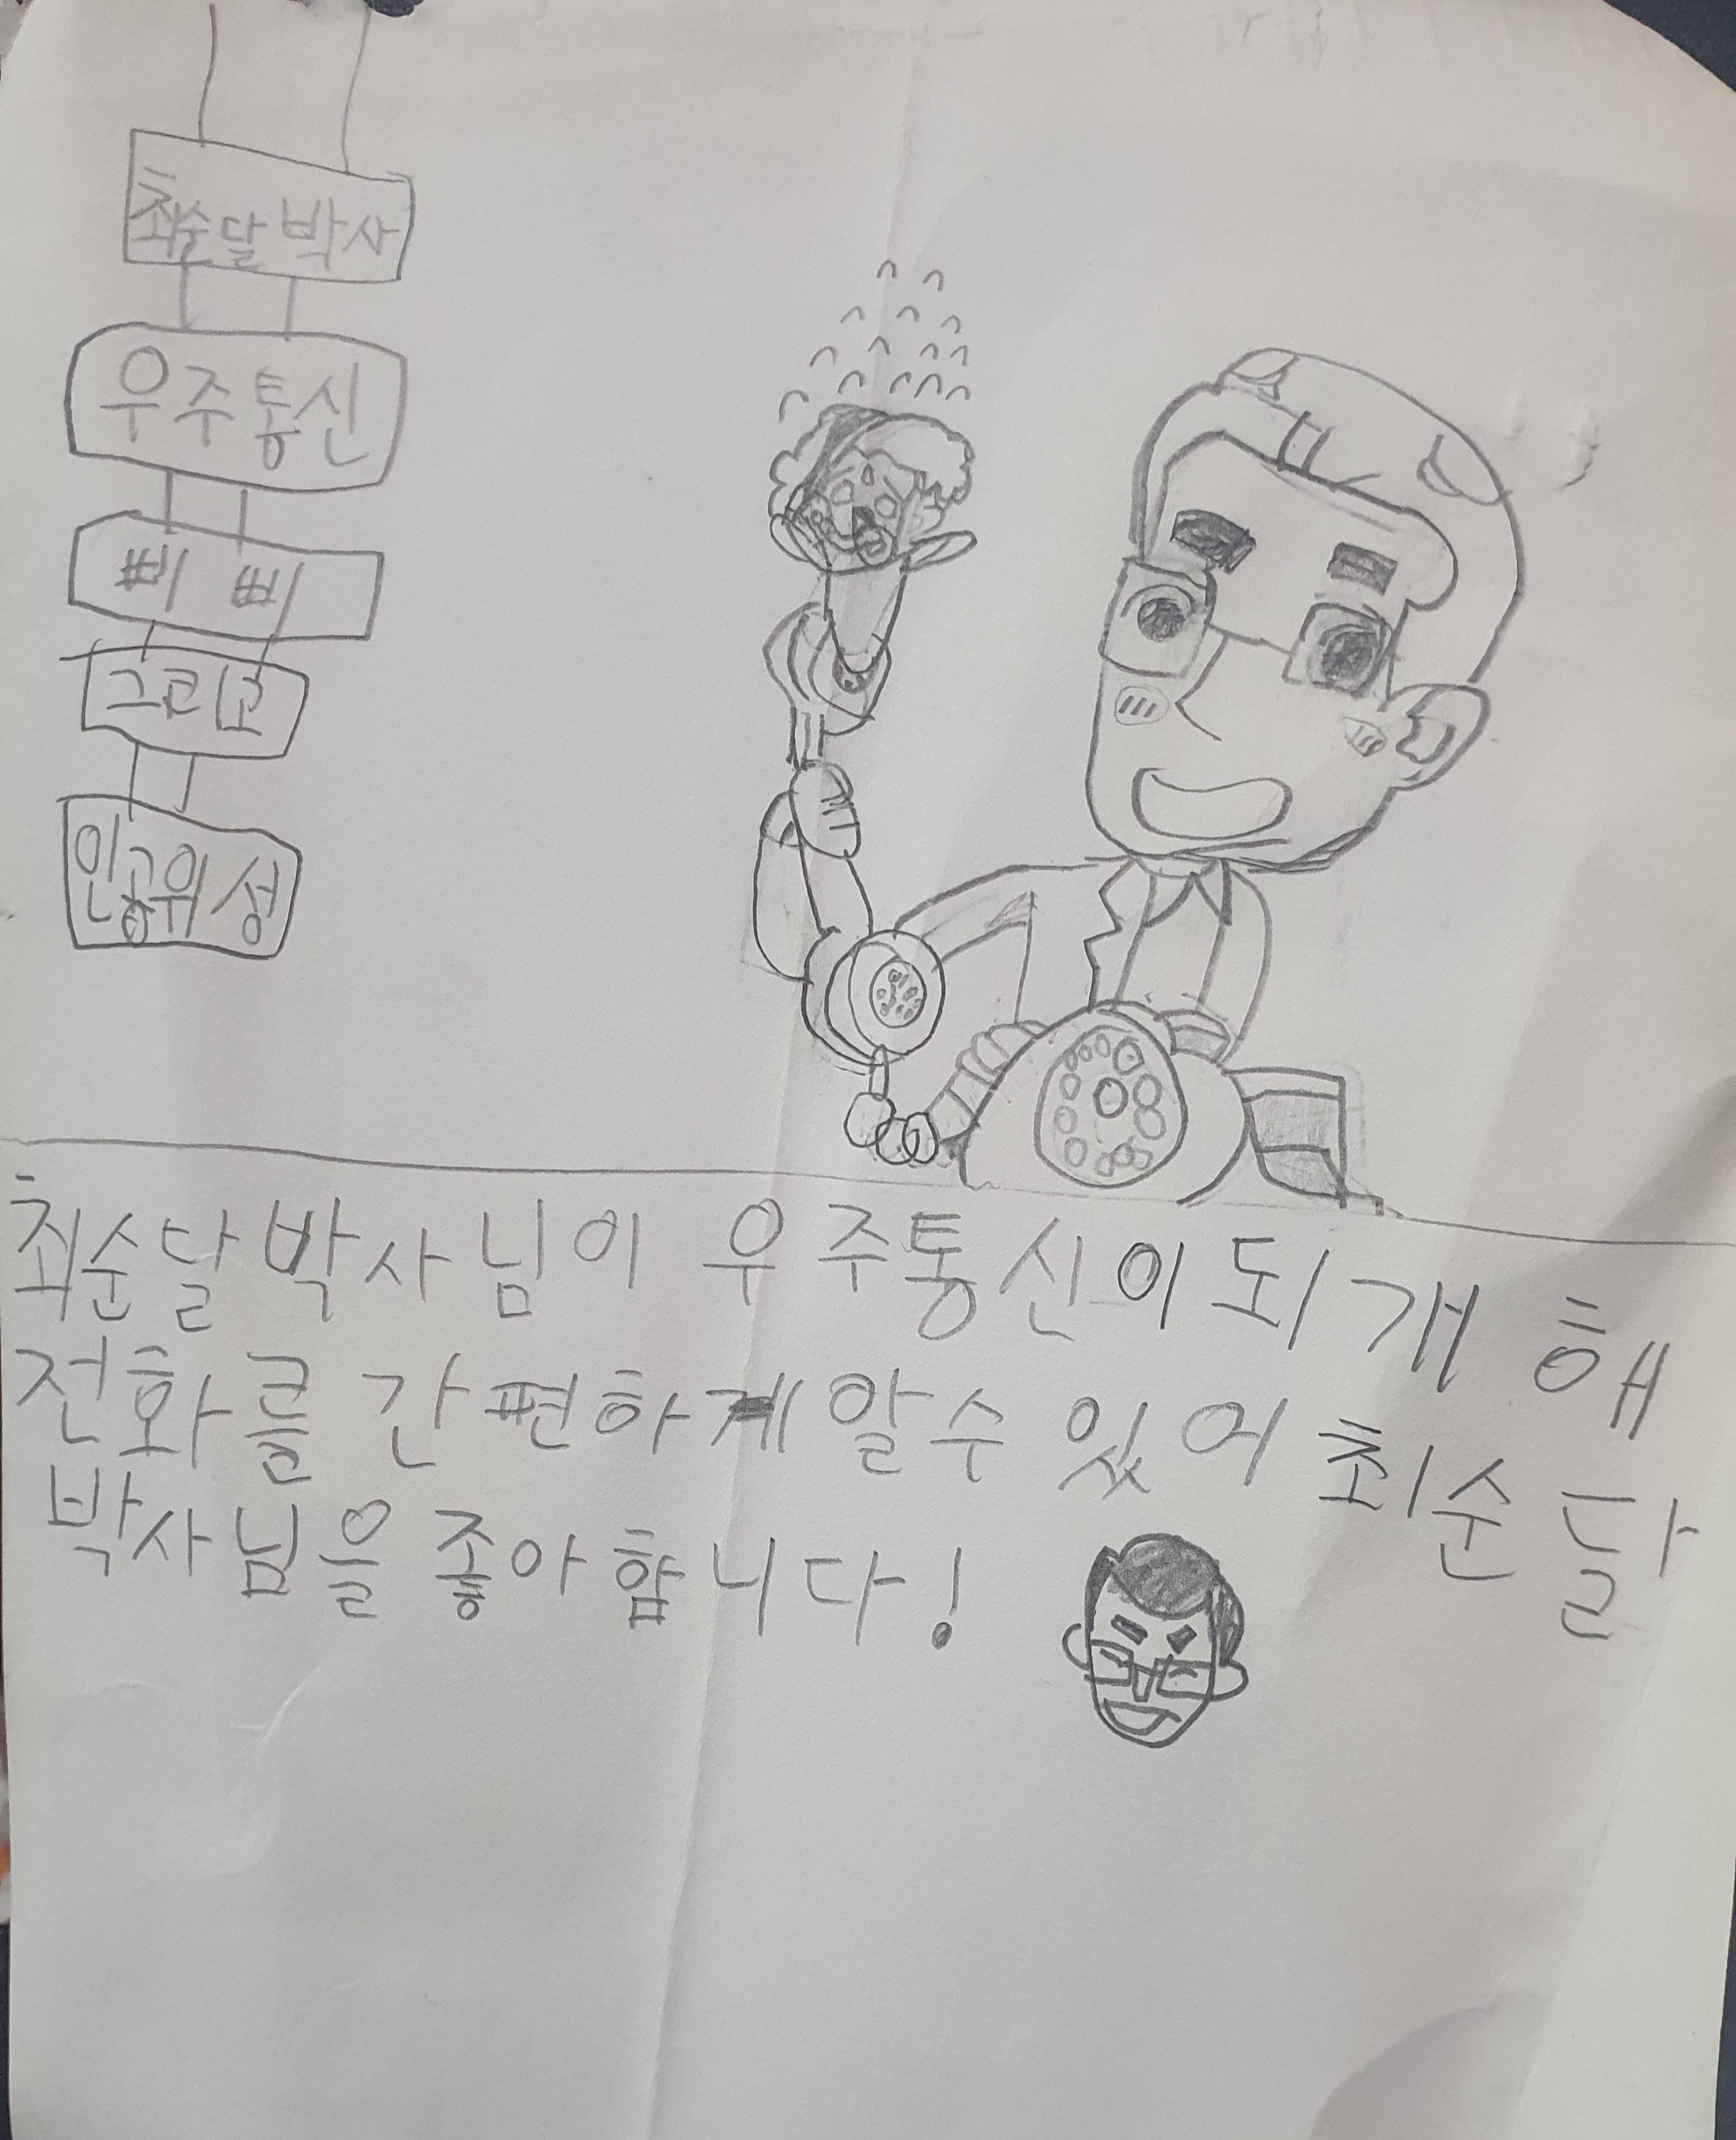 최순달박사
우주통신
삐 삐
그리고
인공위성
최순달박사님이 우주통신이되개 해
전화를 간편하게알수 있어 최순달
박사님을 좋아합니다!